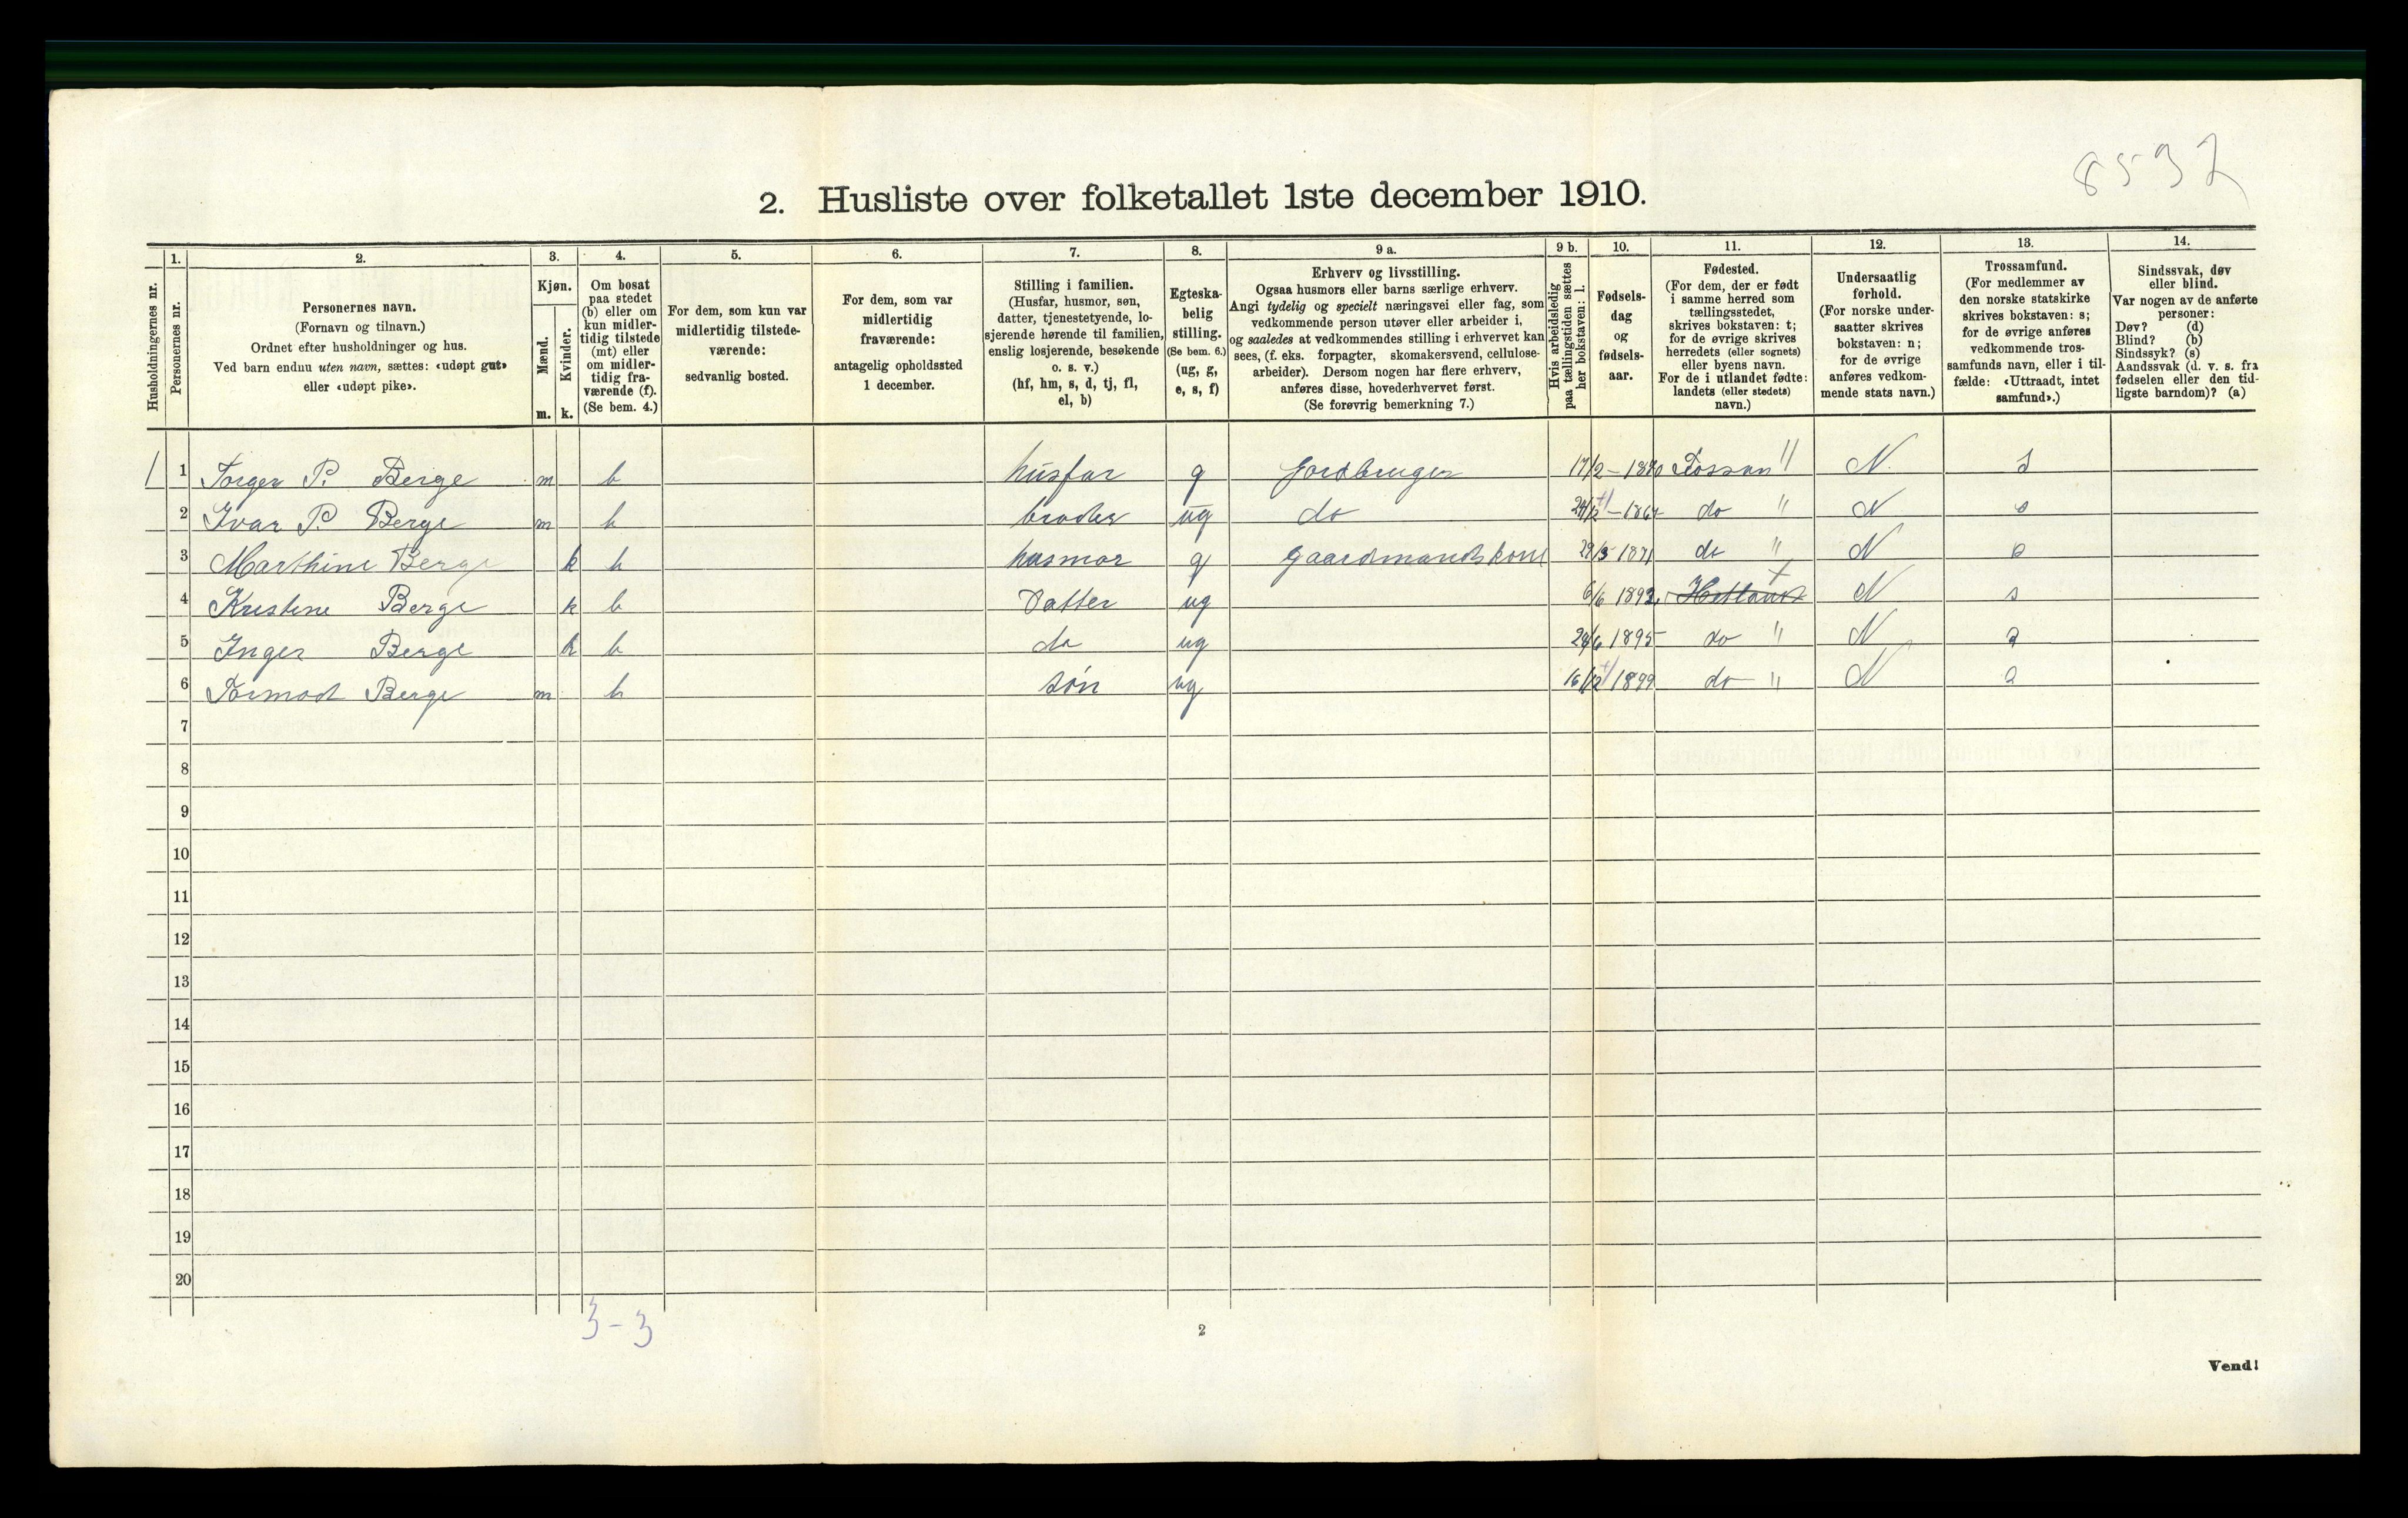 8532
2. Husliste over folketallet 1ste december 1910.
1. 2. 3. 4. 5. 6. 7. 8. 9 a. 9 b. 10. 11. 12. 13. 14.
Husholdningernes nr.
Personernes nr.
Personernes navn.
(Fornavn og tilnavn.)
Ordnet efter husholdninger og hus.
Ved barn endnu uten navn, sættes: «udøpt gut»
eller «udøpt pike».
Kjøn.
Mænd.
Kvinder.
m. k.
Om bosat
paa stedet
(b) eller om
kun midler-
tidig tilstede
(mt) eller
om midler-
tidig fra-
værende (f).
(Se bem. 4.)
For dem, som kun var
midlertidig tilstede-
værende:
sedvanlig bosted.
For dem, som var
midlertidig
fraværende:
antagelig opholdssted
1 december.
Stilling i familien.
(Husfar, husmor, søn,
datter, tjenestetyende, lo-
sjerende hørende til familien,
enslig losjerende, besøkende
o. s. v.)
(hf, hm, s, d, tj, fl,
el, b)
Egteska-
belig
stilling.
(Se bem. 6.)
(ug, g,
e, s, f)
Erhverv og livsstilling.
Ogsaa husmors eller barns særlige erhverv.
Angi tydelig og specielt næringsvei eller fag, som
vedkommende person utøver eller arbeider i,
og saaledes at vedkommendes stilling i erhvervet kan
sees, (f. eks. forpagter, skomakersvend, cellulose-
arbeider). Dersom nogen har flere erhverv,
anføres disse, hovederhvervet først.
(Se forøvrig bemerkning 7.)
Hvis arbeidsledig
paa tællingstiden sættes
her bokstaven: l.
Fødsels-
dag
og
fødsels-
aar.
Fødested.
(For dem, der er født
i samme herred som
tællingsstedet,
skrives bokstaven: t;
for de øvrige skrives
herredets (eller sognets)
eller byens navn.
For de i utlandet fødte:
landets (eller stedets)
navn.)
Undersaatlig
forhold.
(For norske under-
saatter skrives
bokstaven: n;
for de øvrige
anføres vedkom-
mende stats navn.)
Trossamfund.
(For medlemmer av
den norske statskirke
skrives bokstaven: s;
for de øvrige anføres
vedkommende tros-
samfunds navn, eller i til-
fælde: «Uttraadt, intet
samfund».)
Sindssvak, døv
eller blind.
Var nogen av de anførte
personer:
Døv? (d)
Blind? (b)
Sindssyk? (s)
Aandssvak (d. v. s. fra
fødselen eller den tid-
ligste barndom)? (a)
1 1 Torger P. Berge m b husfar g Jordbruger 17/2-18 Fossan " N. s
2 Ivar P. Berge m b broder ug do do " N s
3 Marthine Berge k b husmor g Gaardmandskone 29/5 1871 do " N s
4 Kristine Berge k b Datter ug 6/6 1892 Hetland N s
5 Inger Berge k b do ug 1895 do " N s
6 Tormod Berge m b søn ug 16/12 1899 do " N s
7
8
9
10
11
12
13
14
15
16
17
18
19
20
3-3
2
Vend!